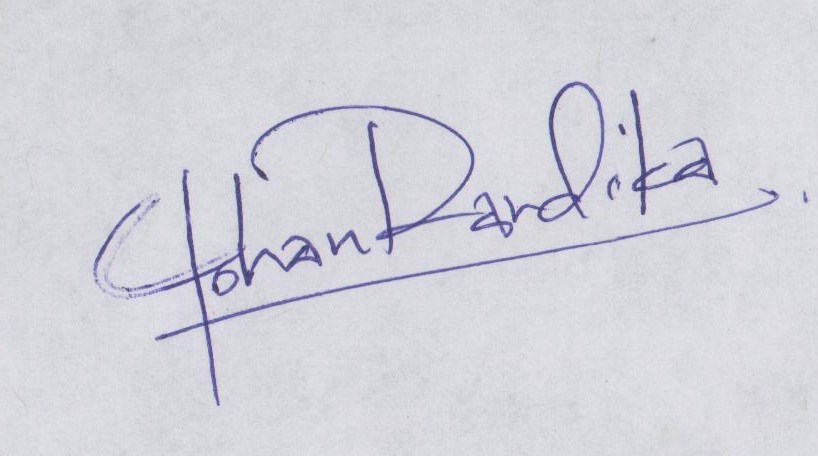 Yohan Randika